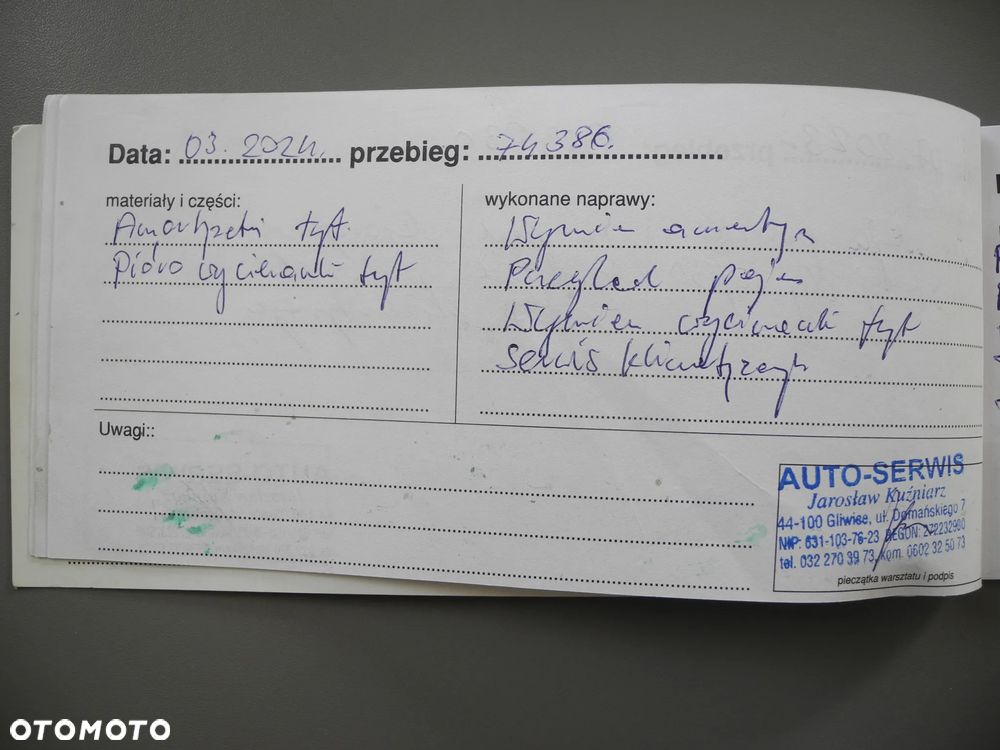 Data: 03.2024. przebieg: 74386.
materiały i części:
Amortyzatori tyt.
Pióro wycieraczki tyt
wykonane naprawy:
Wymien
Przegląd pojaz
Wymien wycieraczki tyt
Serwis klimatyzacyi
Uwagi::
AUTO-SERWIS
Jarosław Kuźniarz
44-100 Gliwice, ul. Domańskiego 7
NIP: 631-103-76-23 REGON: 272232990
tel. 032 270 39 73, kom. 0602 32 50 73
pieczątka warsztatu i podpis
OTOMOTO